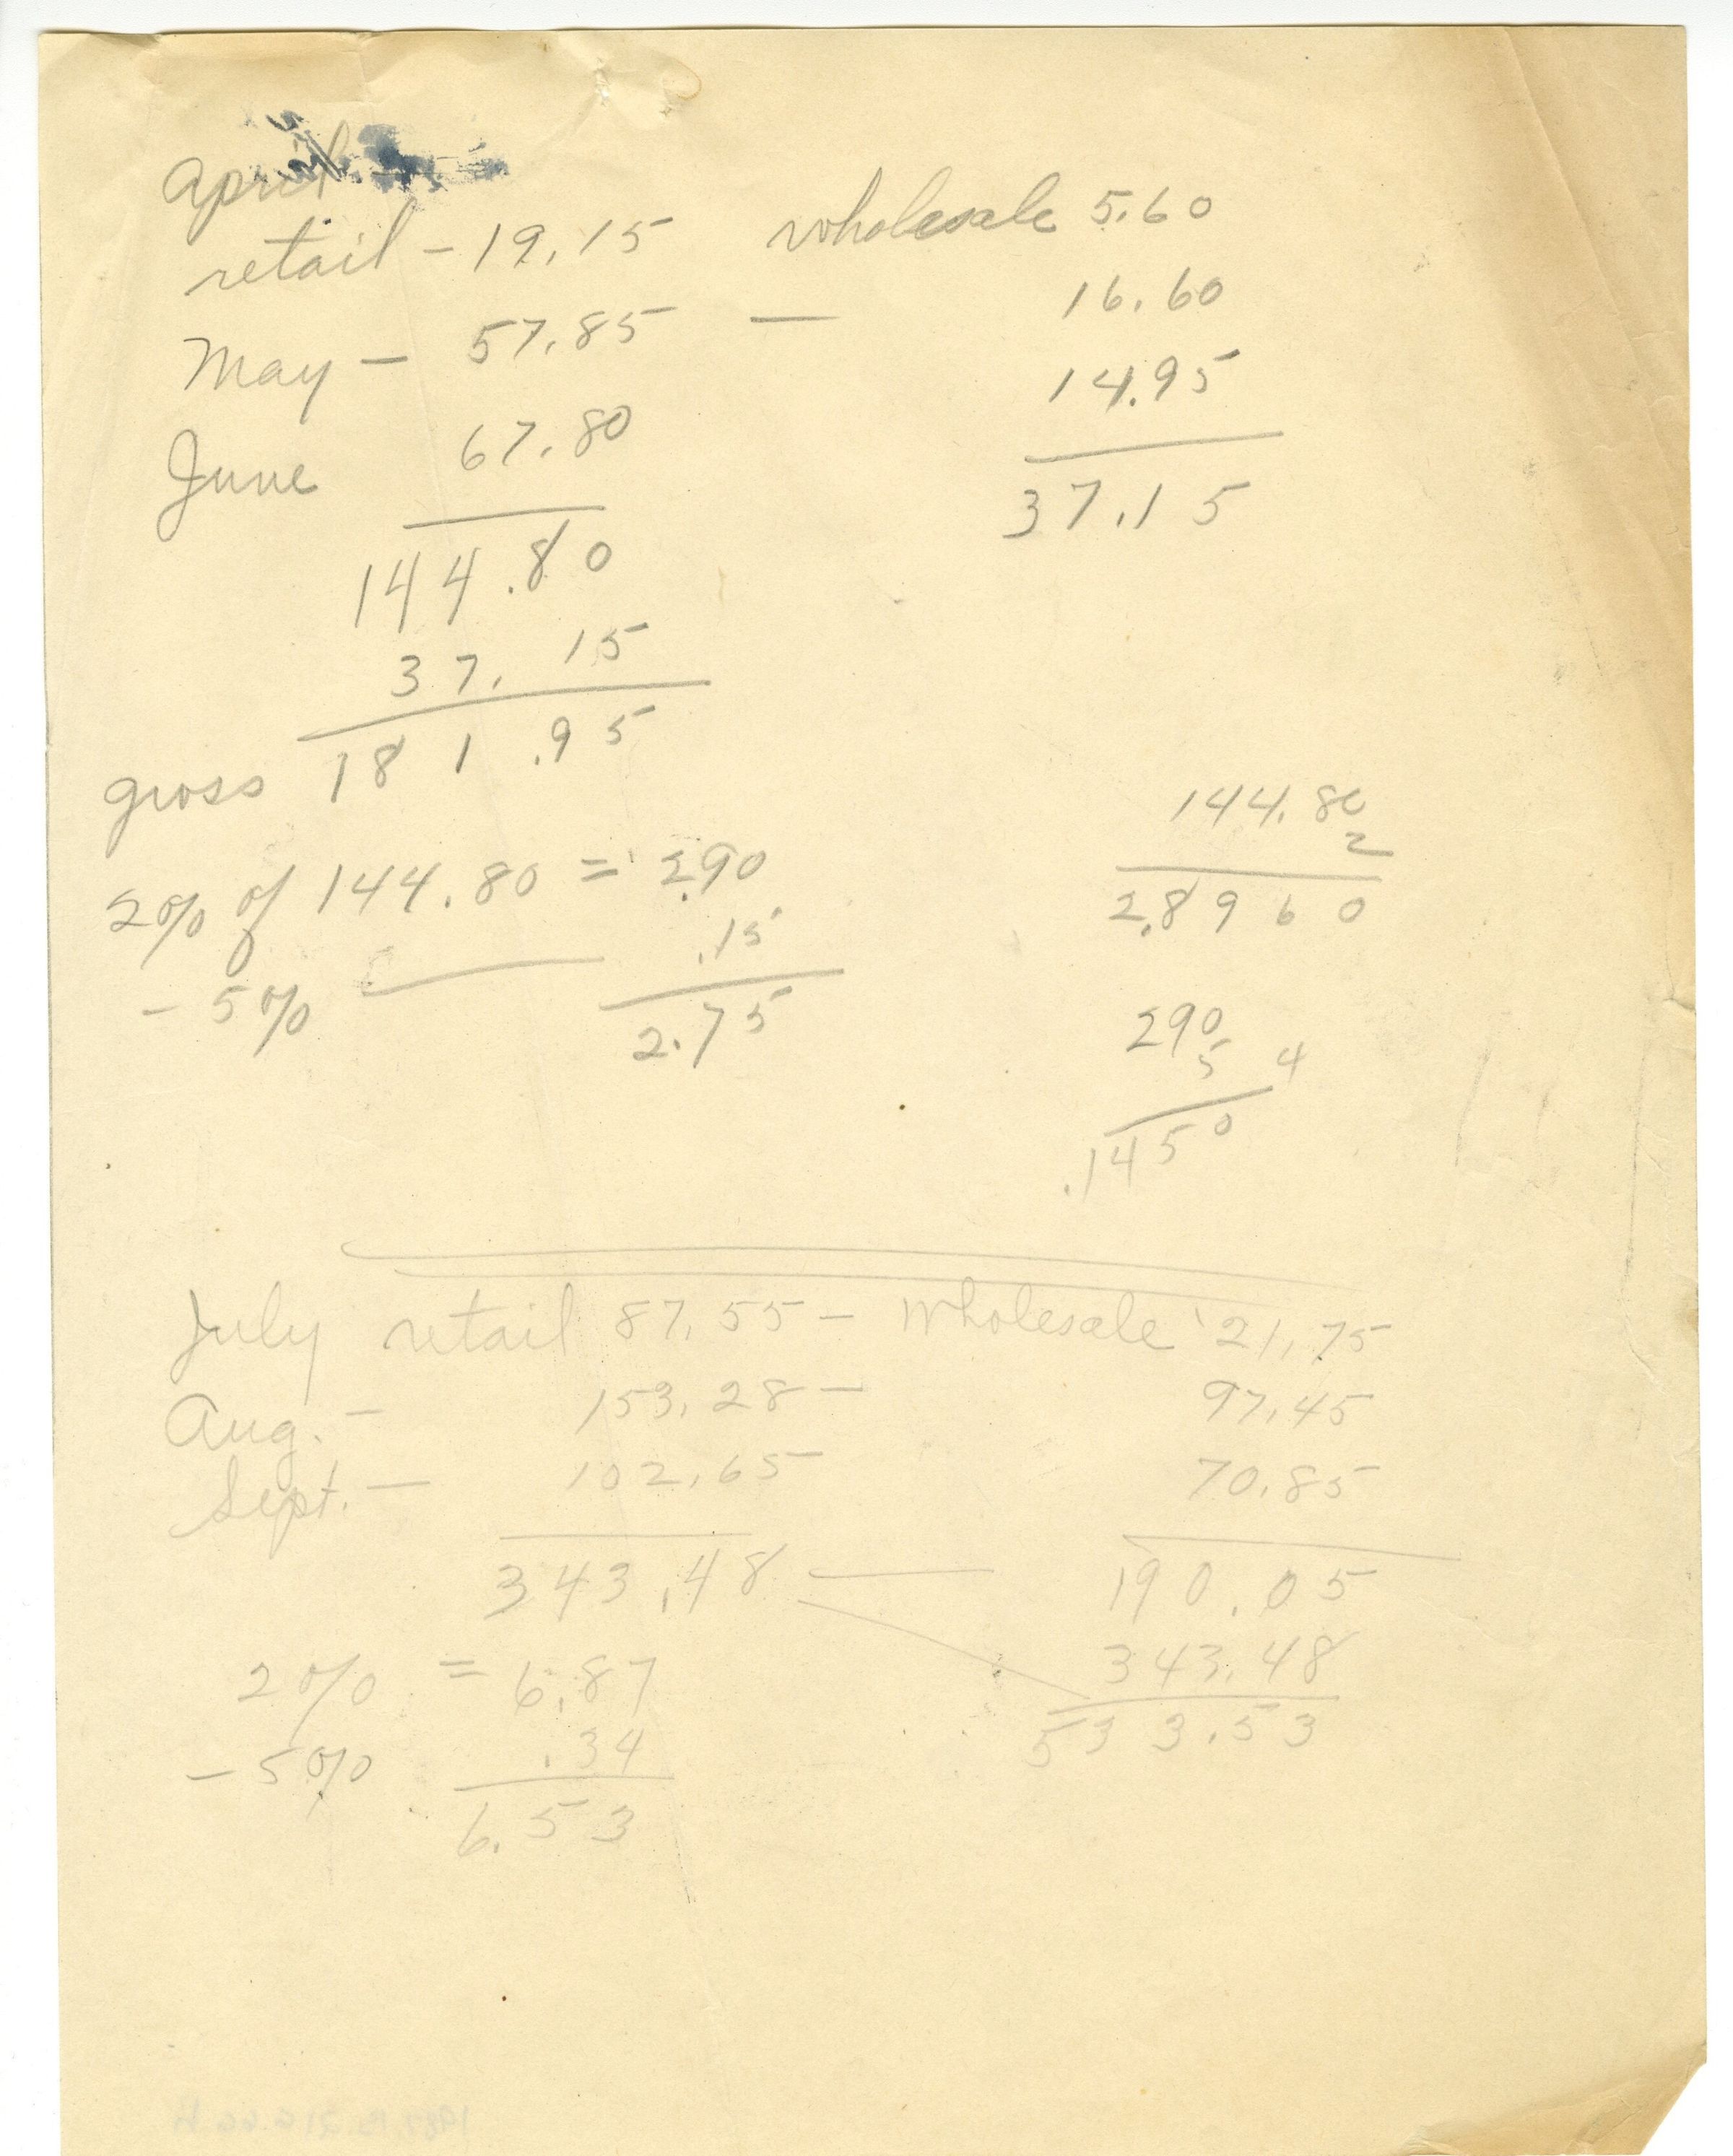 April
retail - 19.15 wholesale 5.60
May - 57.85 — 16.60
June 67.80 14.95
144.80 37.15
37.15
gross 181.95
2% of 144.80 = 2.90
- 5% — .15
2.75
144.80
2
2.8960
290
5 4
.1450
July retail 87.55 - wholesale 21.75
Aug. - 153.28 - 97.45
Sept. - 102.65 70.85
343.48 — 190.05
343.48
533.53
2% = 6.87
- 5% .34
6.53